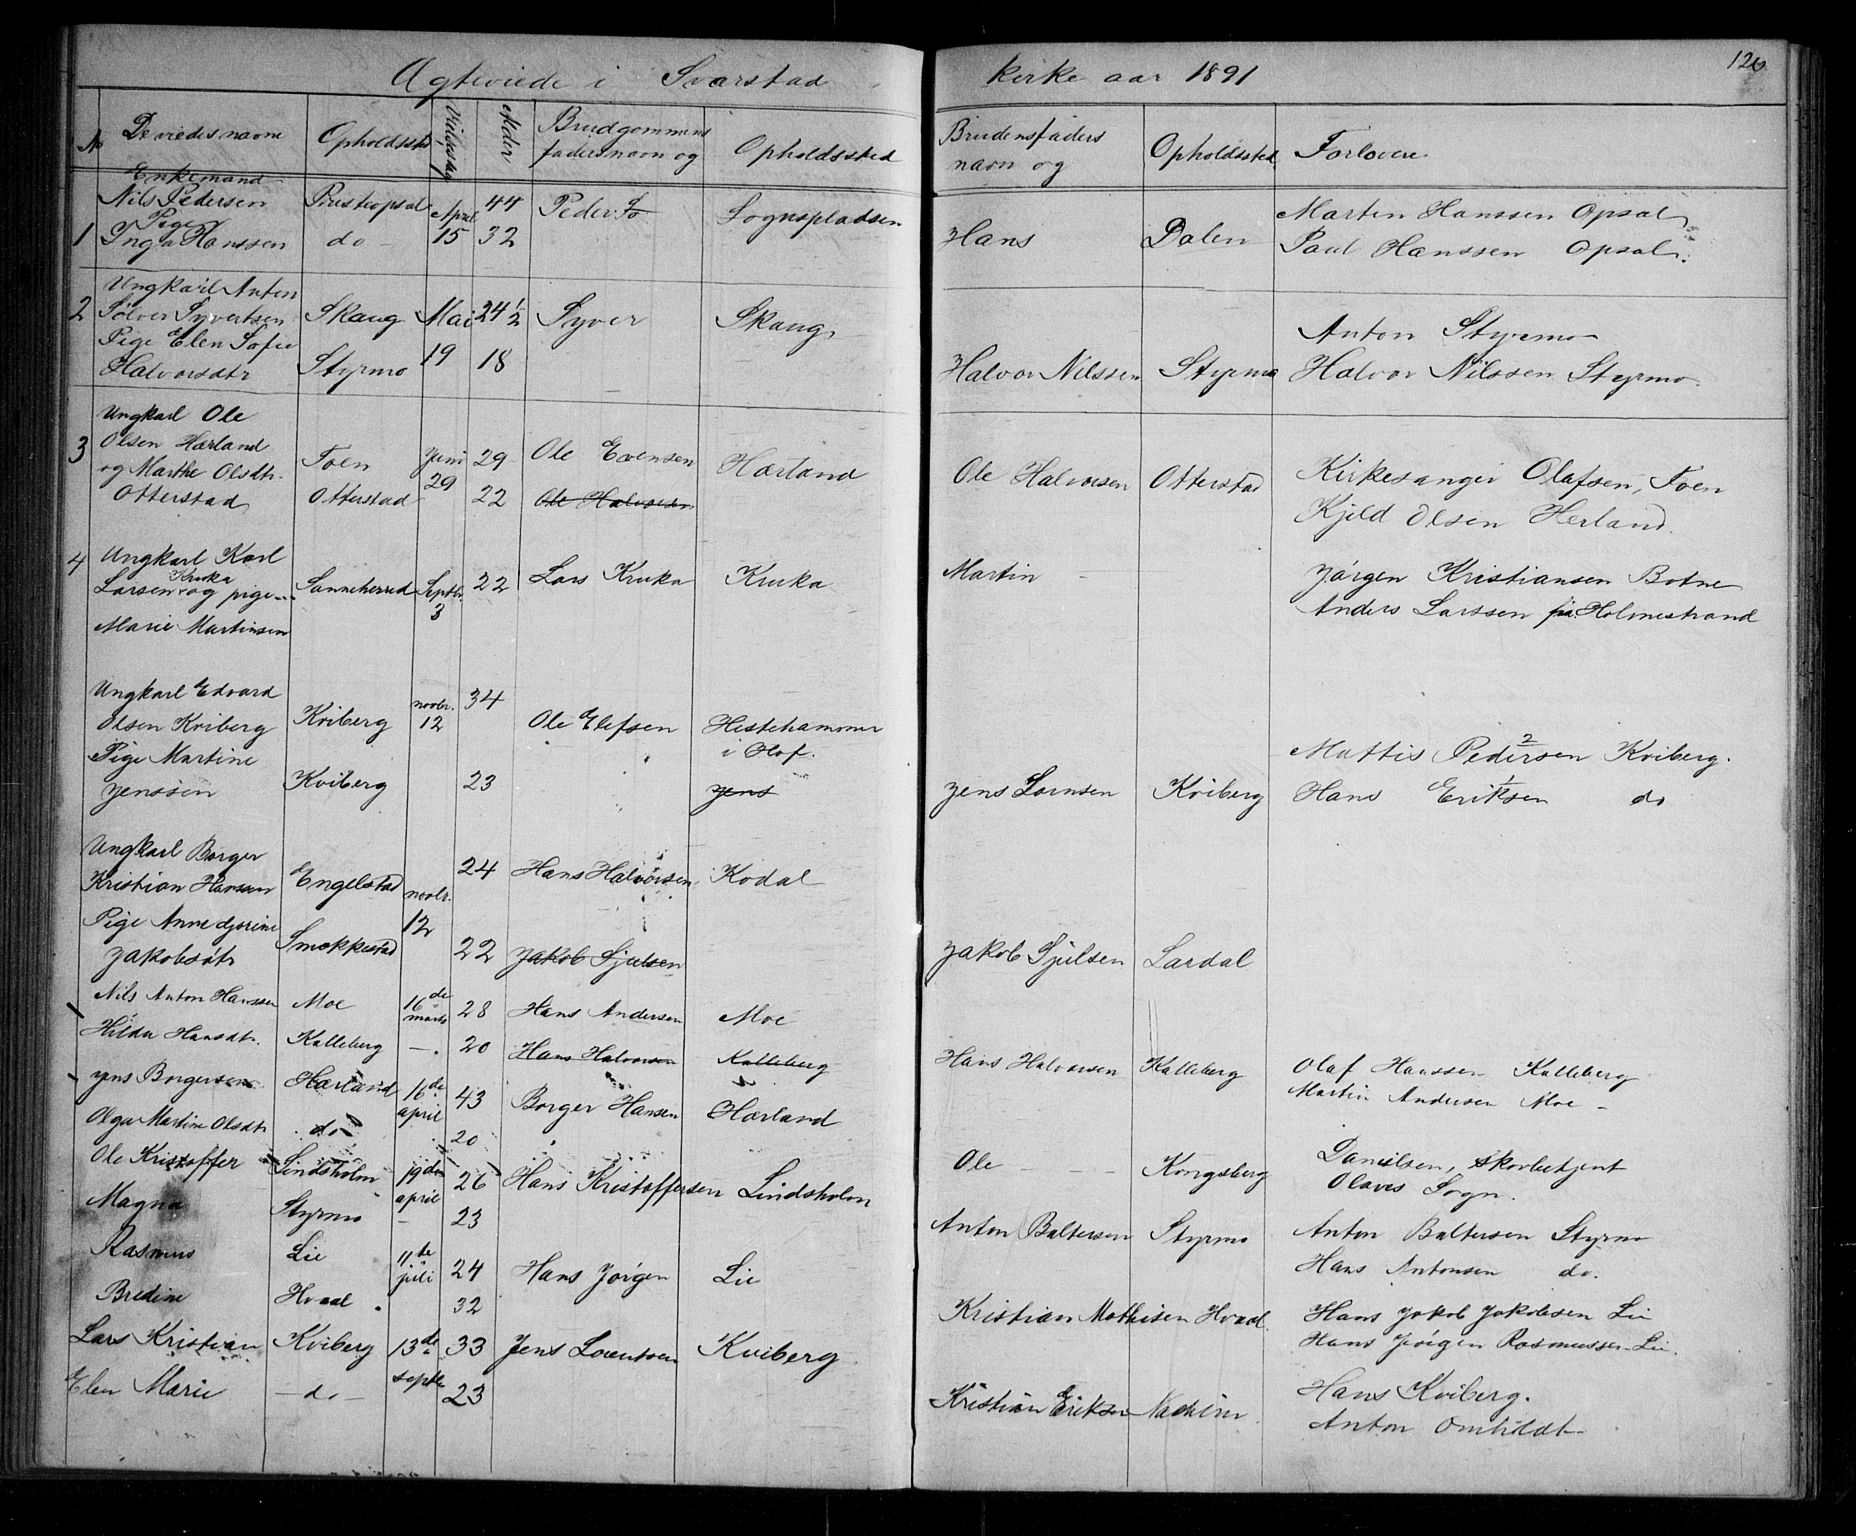 Ægteviede i Svarstad kirke aar 1891
126
No De viedes navne Opholdssted Vielsesdag Alder Brudgommens faders navn og Opholdssted Brudens faders navn og Opholdssted Forlovere
Enkemand
Nils Pedersen 44 Peder Lognspladsen Martin Hanssen Opsal
Pige April
1 Inga Hanssen do 15 32 Hans Dalen Paul Hanssen Opsal.
Ungkarl Anton
2 Sølver Syvertsen Skaug Mai 24 1/2 Syver Skaug
Pige Elen Sofie 19 Anton Styrmo
Halvorsdtr Styrmo 18 Halvor Nilssen Styrmo Halvor Nilssen Styrmo.
Ungkarl Ole
3 Olsen Hærland Foen Juni 29 Ole Evensen Hærland
og Marthe Olsdtr. 29 Ole Halvorsen Otterstad Kirkesanger Olafsen, Foen
Otterstad Otterstad 22 Ole Halvorsen Kjeld Olsen Herland.
4 Ungkarl Karl
Kruka
Larsen og pige Sanneherred Septbr. 22 Lars Kruka Kruka Martin Jørgen Kristiansen Botne
3 Anders Larssen fra Holmestrand
Marie Martinsen
Ungkarl Edvard novbr. 34
Olsen Kviberg Kviberg 12 Ole Elefsen Hestehammer
Pige Martine i Hof. Mattis Pedersen 2 Kviberg.
Jenssen Kviberg 23 Jens Jens Lornsen Kviberg Hans Eriksen 1 do
Ungkarl Borger 24 Hans Halvorsen Kodal
Kristian Hansen Engelstad novbr.
Pige Anne djorine 12
Jakobsdtr Smekkestad 22 Jakob Sjulsen Jakob Sjulsen Lardal
Nils Anton Hanssen Moe 16de marts 28 Hans Andersen Moe
Hilda Hansdtr. Kalleberg — 20 Hans Halvorsen Kalleberg Hans Halvorsen Kalleberg Olaf Hanssen Kalleberg
Martin Andersen Moe
Jens Borgersen Hærland 16de april 43 Borger Hansen Hærland
Olga Martine Olsdtr do 20 Ole Kongsberg Danielsen, skovbetjent
Olaves Sogn.
Ole Kristoffer Lindsholm 19de april 26 Hans Kristoffersen Lindsholm
Magna Styrmo — 23 Anton Baltersen Styrmo Anton Baltersen Styrmo
Hans Antonsen do.
Rasmus Lie 11te juli 24 Hans Jørgen Lie
Bredine Hvaal 32 Kristian Mathisen Hvaal. Hans Jakob Jakobsen Lie
Hans Jørgen Rasmussen Lie.
Lars Kristian Kviberg 13de septbr 33 Jens Lorentsen Kviberg
Elen Marie —do— 23 Kristian Eriksen Hans Kviberg.
Anton